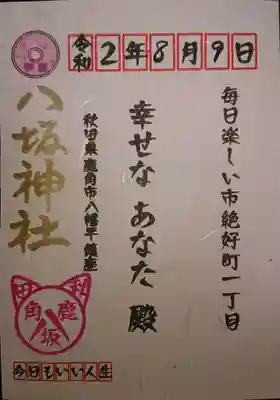 令和2年8月9日
毎日楽しい市絶好町一丁目
幸せな あなた 殿
秋田県鹿角市八幡平鎮座
八坂神社
鹿角
八坂
今日もいい人生